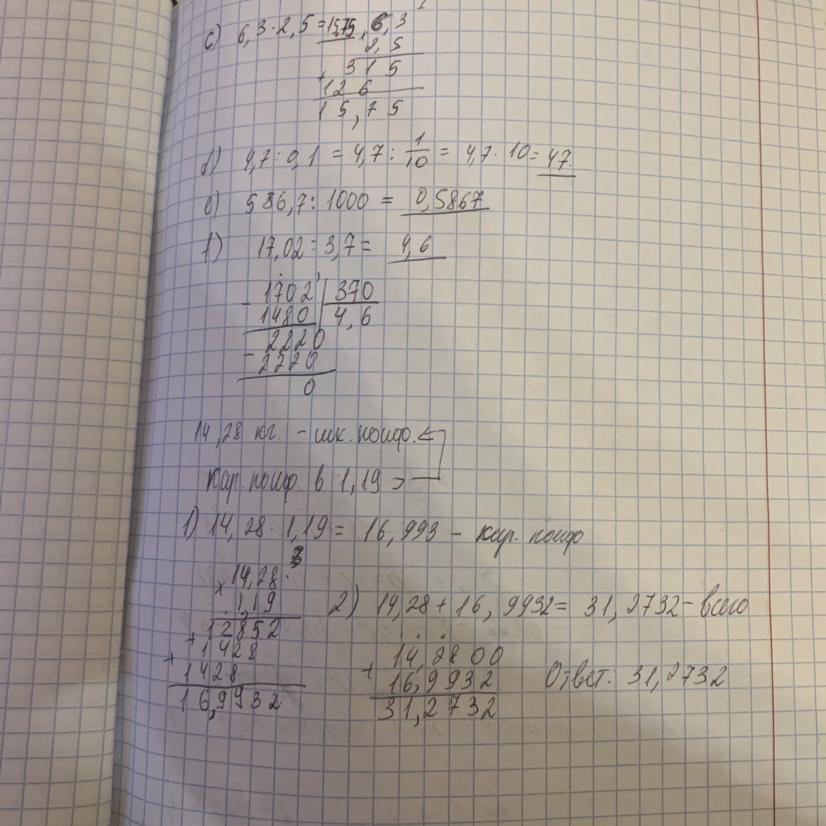 c) 6,3·2,5=15,75
6,3
2,5
+ 315
126
15,75
4,7:0,1 = 4,7: 1/10 = 4,7·10=47
586,7:1000 = 0,5867
17,02:3,7= 4,6
- 1702 | 370
1480 | 4,6
2220
- 2220
0
14,28 кг. - шк. конф.
Кар. конф в 1,19 >
1) 14,28·1,19= 16,993 - кар. конф
× 14,28
1,19
+ 12852
+ 1428
1428
16,9932
2) 14,28+16,9932= 31,2732-всего
+ 14,2800
16,9932
31,2732
Ответ: 31,2732